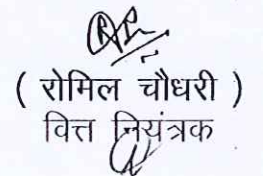 ( रोमिल चौधरी )
वित्त नियंत्रक